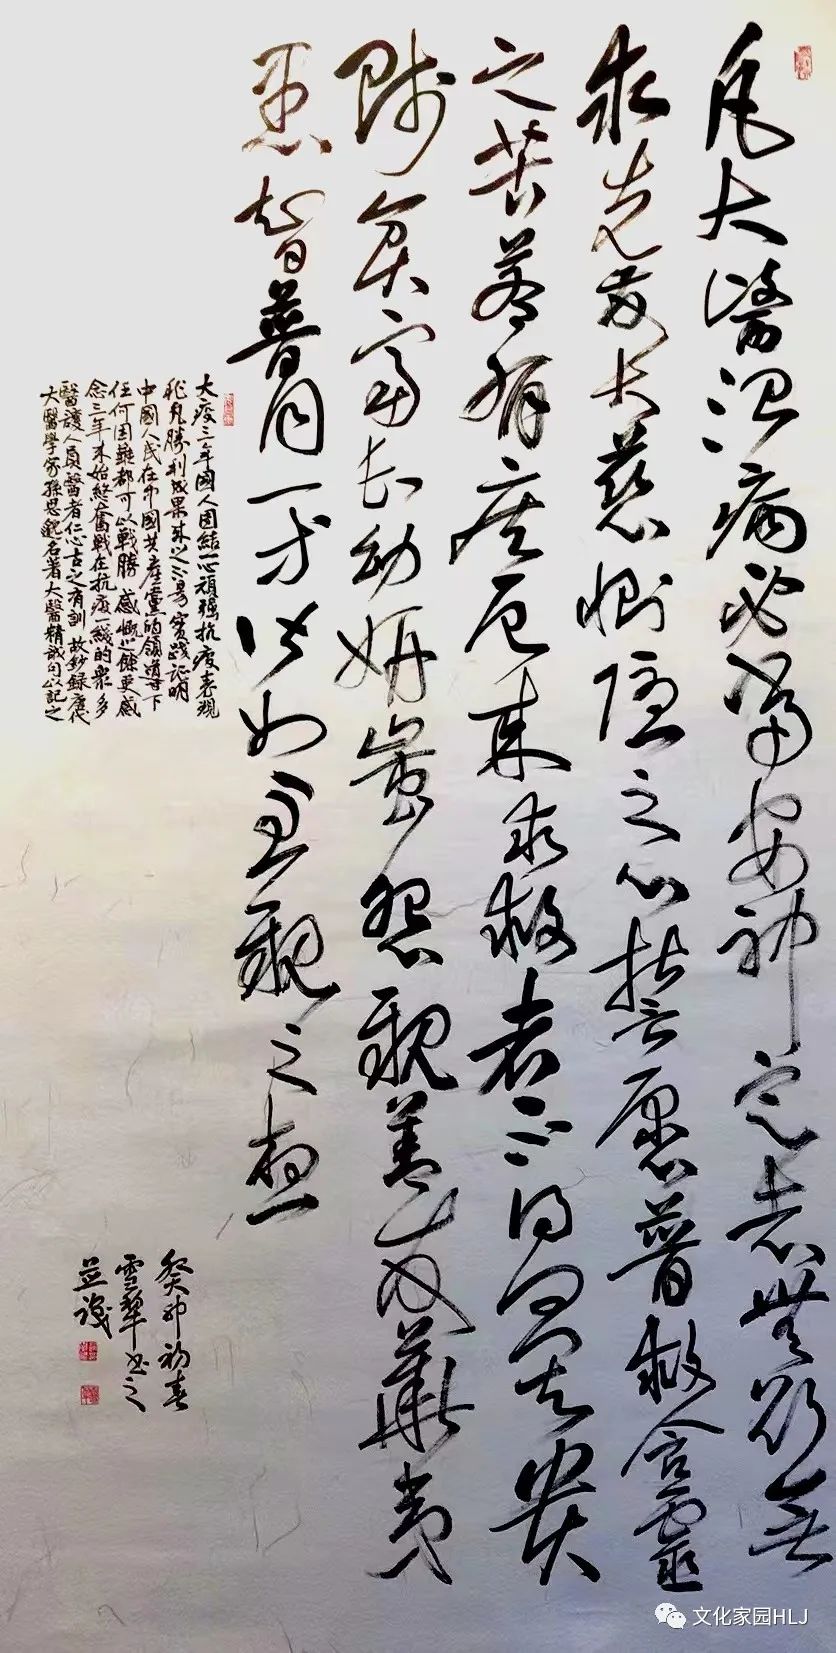 凡大醫治病必當安神定志無欲無
求先發大慈惻隱之心誓愿普救含靈
之苦若有疾厄來求救者不得問其貴
賤貧富長幼妍蚩怨親善友華夷
愚智普同一等皆如至親之想
大疫三年國人團結一心頑强抗疫表現
非凡勝利成果來之不易實踐証明
中國人民在中國共產黨的領導下
任何困難都可以戰勝 感慨之餘更感
念三年來始終奮戰在抗疫一綫的衆多
醫護人員醫者仁心古之有訓 故鈔錄唐代
大醫學家孫思邈名著大醫精誠句以記之
癸卯初春
雪犁書之
並識
文化家园HLJ